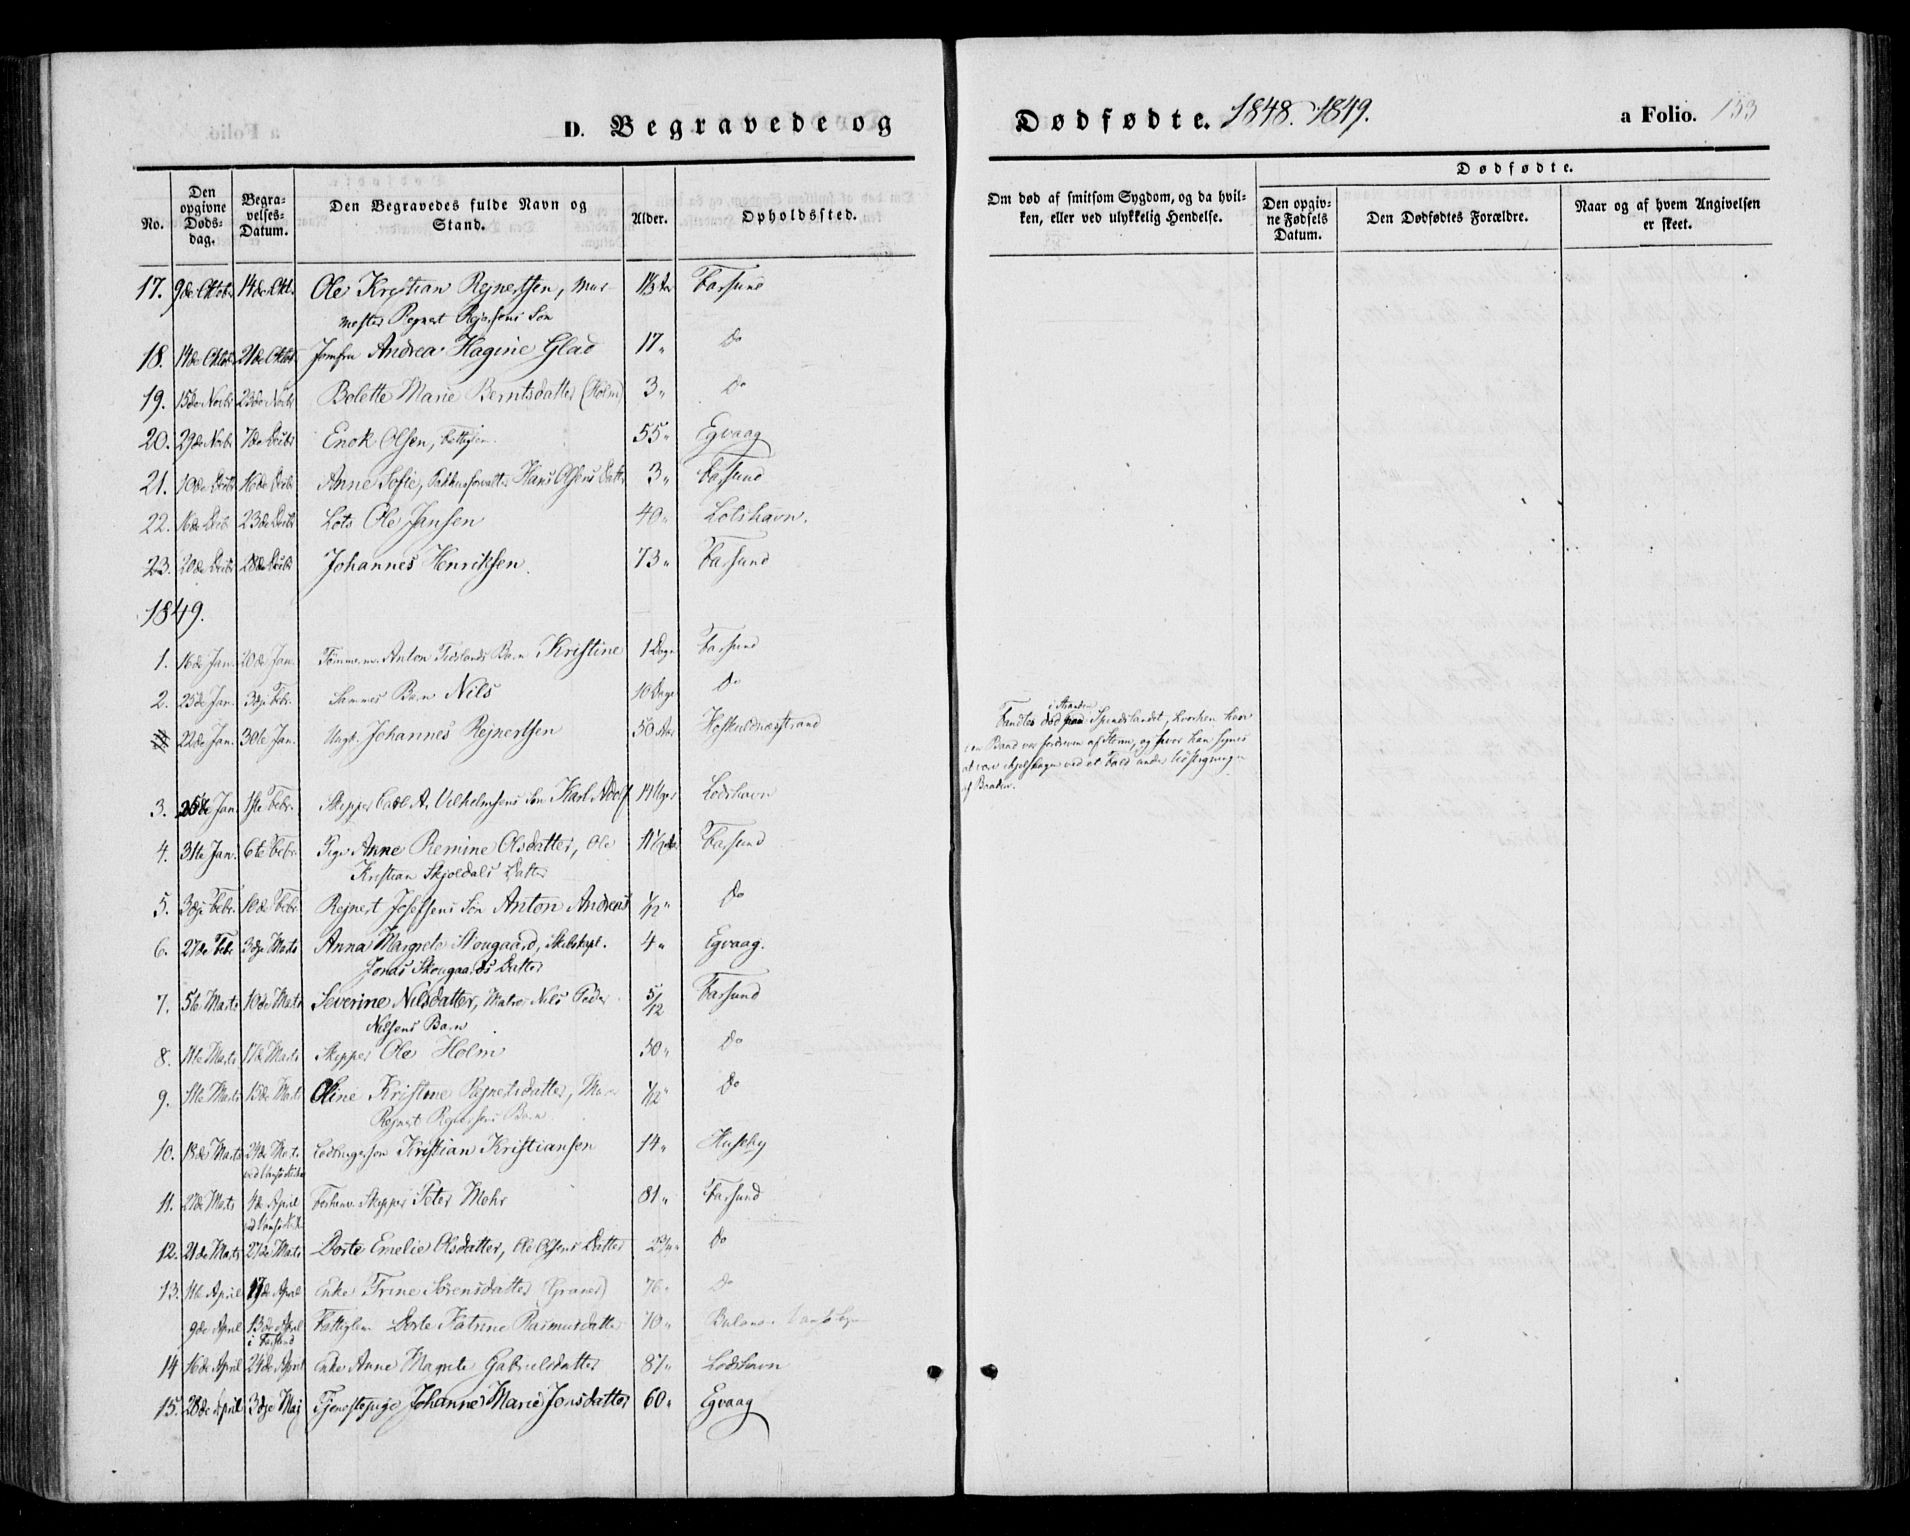 D. Begravede og Dødfødte. 1848. 1849. a Folio. 153
No. Den opgivne Døds-dag. Begra-velses-Datum. Den Begravedes fulde Navn og Stand. Alder. Opholdssted.
Om død af smitsom Sygdom, og da hvil-ken, eller ved ulykkelig Hendelse. Dødfødte. Den opgiv-ne Fødsels Datum. Den Dødfødtes Forældre. Naar og af hvem Angivelsen er skeet.
17. 9de Oktobr 14de Okt. Ole Kristian Rejnertsen, Mur- Farsund
mester Rejnert Søn
18. 14de Oktob 21de Oktob Jomfru Andrea Hagine Glad 17 " Do
19. 15de Novbr 23de Novbr Bolette Marie Berntsdatter (Holm) 3 " Do
20. 29de Novbr 7de Decbr Enok Olsen, Fattiglem. 55 " Egvaag
21. 10de Decbr 16de Decbr Anne Sofie, Pakhusforvalter Hans Olsens Datter 3 " Farsund
22. 16de Decbr 23de Decbr Lots Ole Jansen 40 " Lotshavn.
23. 20de Decbr 28de Decbr Johannes Henriksen. 73 " Farsund
1849.
1. 16de Jan. 20de Jan. Tømmerm. Anton Barn Kristine 1 Dage Farsund
2. 25de Jan. 3dje Febr. Sammes Barn Nils 10 Dage Do
22de Jan. 30te Jan. Ungk. Johannes Rejnertsen 50 Aar
i Stranden
Fandtes død paa Spindslandet, hvorhen hans
Baad var fordreven af Storm, og hvor han synes
at være ihjelslagen ved et Fald under Udstigningen
af Baaden.
3. 25de Jan. 1ste Febr. Skipper Carl A. Vilhelmsens Søn Karl Adolf 14 Uger Lodshavn
4. 31te Jan. 6te Febr. Pige Anne Remine Olsdatter, Ole 11 1/2 Farsund
Kristian Skjoldals Datter
5. 3dje Febr. 10de Febr. Rejnert Josefsens Søn Anton Andreas 1/12 " Do
6. 27de Febr 3dje Marts Anna Margrete Skougaard, Skibskapt. 4 " Egvaag.
Jonas Skougaards Datter
7. 5te Marts 10de Marts Severine Nilsdatter, Matros Nils Peder 5/12 Farsund
Nilsens Barn
8. 11te Marts 17de Marts Skipper Ole Holm 30 " Do
9. 11te Marts 15de Marts Oline Kristine Rejnertsdatter, Murm 1/12 " Do
Rejnert Barn
10. 18de Marts 24de Marts Kristian Kristiansen 14 " Huseby
11. 27de Marts 4de April Forhenv. Skipper Peter Mohr 81 " Farsund
12. 21de Marts 27de Marts Dorte Emelie Olsdatter, Ole Olsens Datter Do
13. 11te April 17de April Enke Trine Sørensdatter 76 " Do
9de April 13de April Fattiglem Dorte Katrine Rasmusdatter 70 "
i Farsund
14 16de April 24de April Enke Anne Magrete Gabrielsdatter 87 " Lodshavn
15. 28de April 3dje Maj Tjenestepige Johanne Marie Jonsdatter 60 " Egvaag